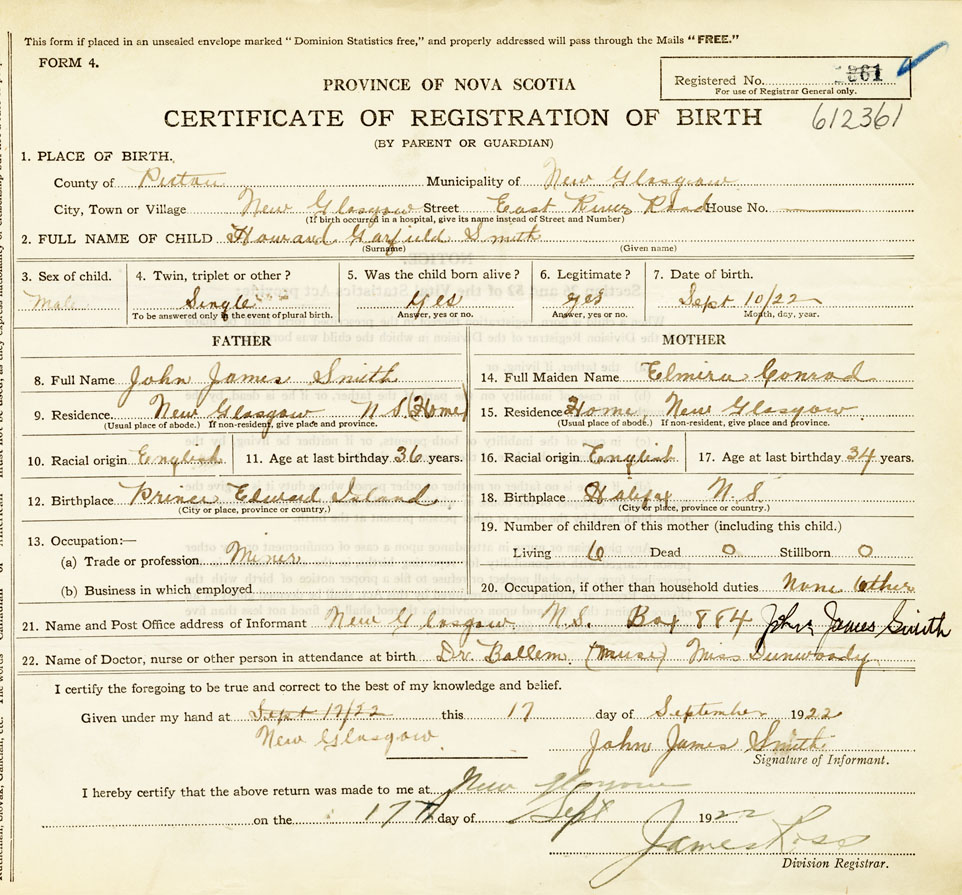 This form if placed in an unsealed envelope marked "Dominion Statistics free," and properly addressed will pass through the Mails "FREE."
FORM 4.
Registered No. 1861
For use of Registrar General only.
PROVINCE OF NOVA SCOTIA
CERTIFICATE OF REGISTRATION OF BIRTH
612361
(BY PARENT OR GUARDIAN)
1. PLACE OF BIRTH.
County of Pictou Municipality of New Glasgow
City, Town or Village New Glasgow Street East River Road House No.
(If birth occurred in a hospital, give its name instead of Street and Number)
2. FULL NAME OF CHILD Howard Garfield Smith
(Surname) (Given name)
3. Sex of child. 4. Twin, triplet or other? 5. Was the child born alive? 6. Legitimate? 7. Date of birth.
Male Single Yes Yes Sept 10/22
To be answered only in the event of plural birth. Answer, yes or no. Answer, yes or no. Month, day, year.
FATHER MOTHER
8. Full Name John James Smith 14. Full Maiden Name Elmira Conrad
9. Residence New Glasgow N S (Home) 15. Residence Home New Glasgow
(Usual place of abode.) If non-resident, give place and province. (Usual place of abode.) If non-resident, give place and province.
10. Racial origin English 11. Age at last birthday 36 years. 16. Racial origin English 17. Age at last birthday 34 years.
12. Birthplace Prince Edward Island 18. Birthplace Halifax N. S.
(City or place, province or country.) (City or place, province or country.)
13. Occupation:— 19. Number of children of this mother (including this child.)
(a) Trade or profession Miner Living 6 Dead 0 Stillborn 0
(b) Business in which employed 20. Occupation, if other than household duties None Other
21. Name and Post Office address of Informant New Glasgow N.S. Box 884 John James Smith
22. Name of Doctor, nurse or other person in attendance at birth Dr. Ballem (Nurse) Miss Dunwoody
I certify the foregoing to be true and correct to the best of my knowledge and belief.
Given under my hand at Sept 17/22 this 17 day of September 1922
New Glasgow John James Smith
Signature of Informant.
I hereby certify that the above return was made to me at New Glasgow
on the 17th day of Sept 1922
James Ross
Division Registrar.